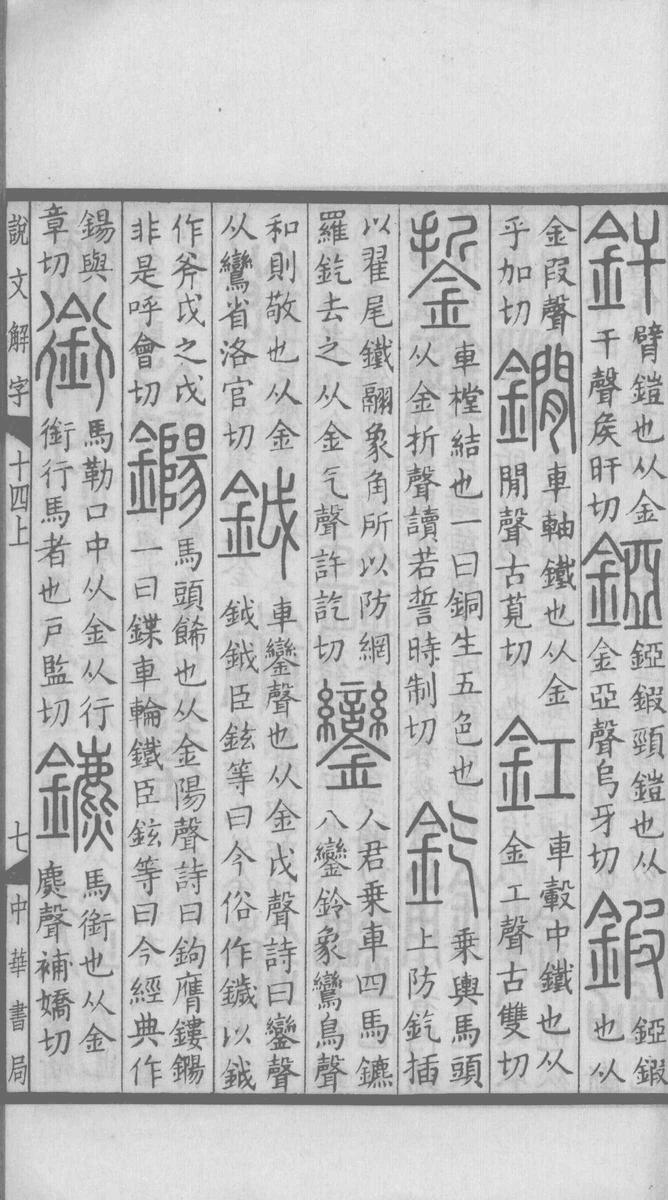 釬
臂鎧也从金
干聲矦旰切
錏
錏鍜頸鎧也从
金亞聲烏牙切
鍜
錏鍜
也从
金叚聲
乎加切
鐧
車軸鐵也从金
閒聲古莧切
釭
車轂中鐵也从
金工聲古雙切
銴
車樘結也一曰銅生五色也
从金折聲讀若誓時制切
釳
乗輿馬頭
上防釳插
以翟尾鐵翮象角所以防網
羅釳去之从金气聲許訖切
鑾
人君乗車四馬鑣
八鑾鈴象鸞鳥聲
和則敬也从金
从鸞省洛官切
鉞
車鑾聲也从金戉聲詩曰鑾聲
鉞鉞臣鉉等曰今俗作鐬以鉞
作斧戉之戉
非是呼會切
鐊
馬頭飾也从金陽聲詩曰鉤膺鏤鐊
一曰鍱車輪鐵臣鉉等曰今經典作
鍚與
章切
銜
馬勒口中从金从行
銜行馬者也戸監切
鑣
馬銜也从金
麃聲補嬌切
說文解字
十四上
七
中華書局